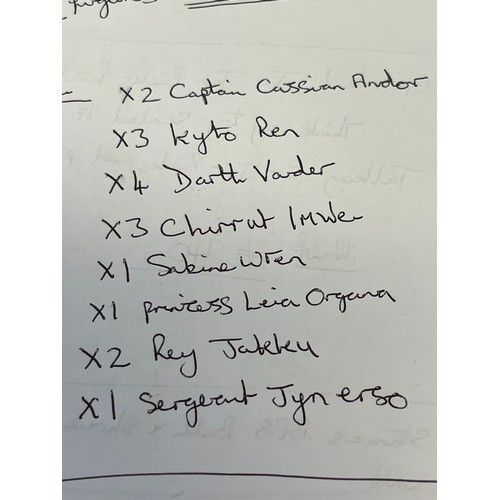 X2 Captain Cassian Andor
X3 Kylo Ren
X4 Darth Vader
X3 Chirrut Imwe
X1 Sabine Wren
X1 Princess Leia Organa
X2 Rey Jakku
X1 Sergeant Jyn erso